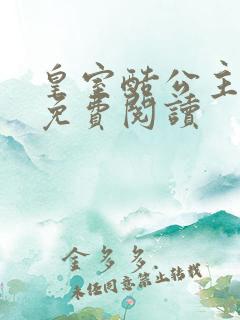 皇室酷公主
免費閱讀
金多多.
未经同意禁止转载